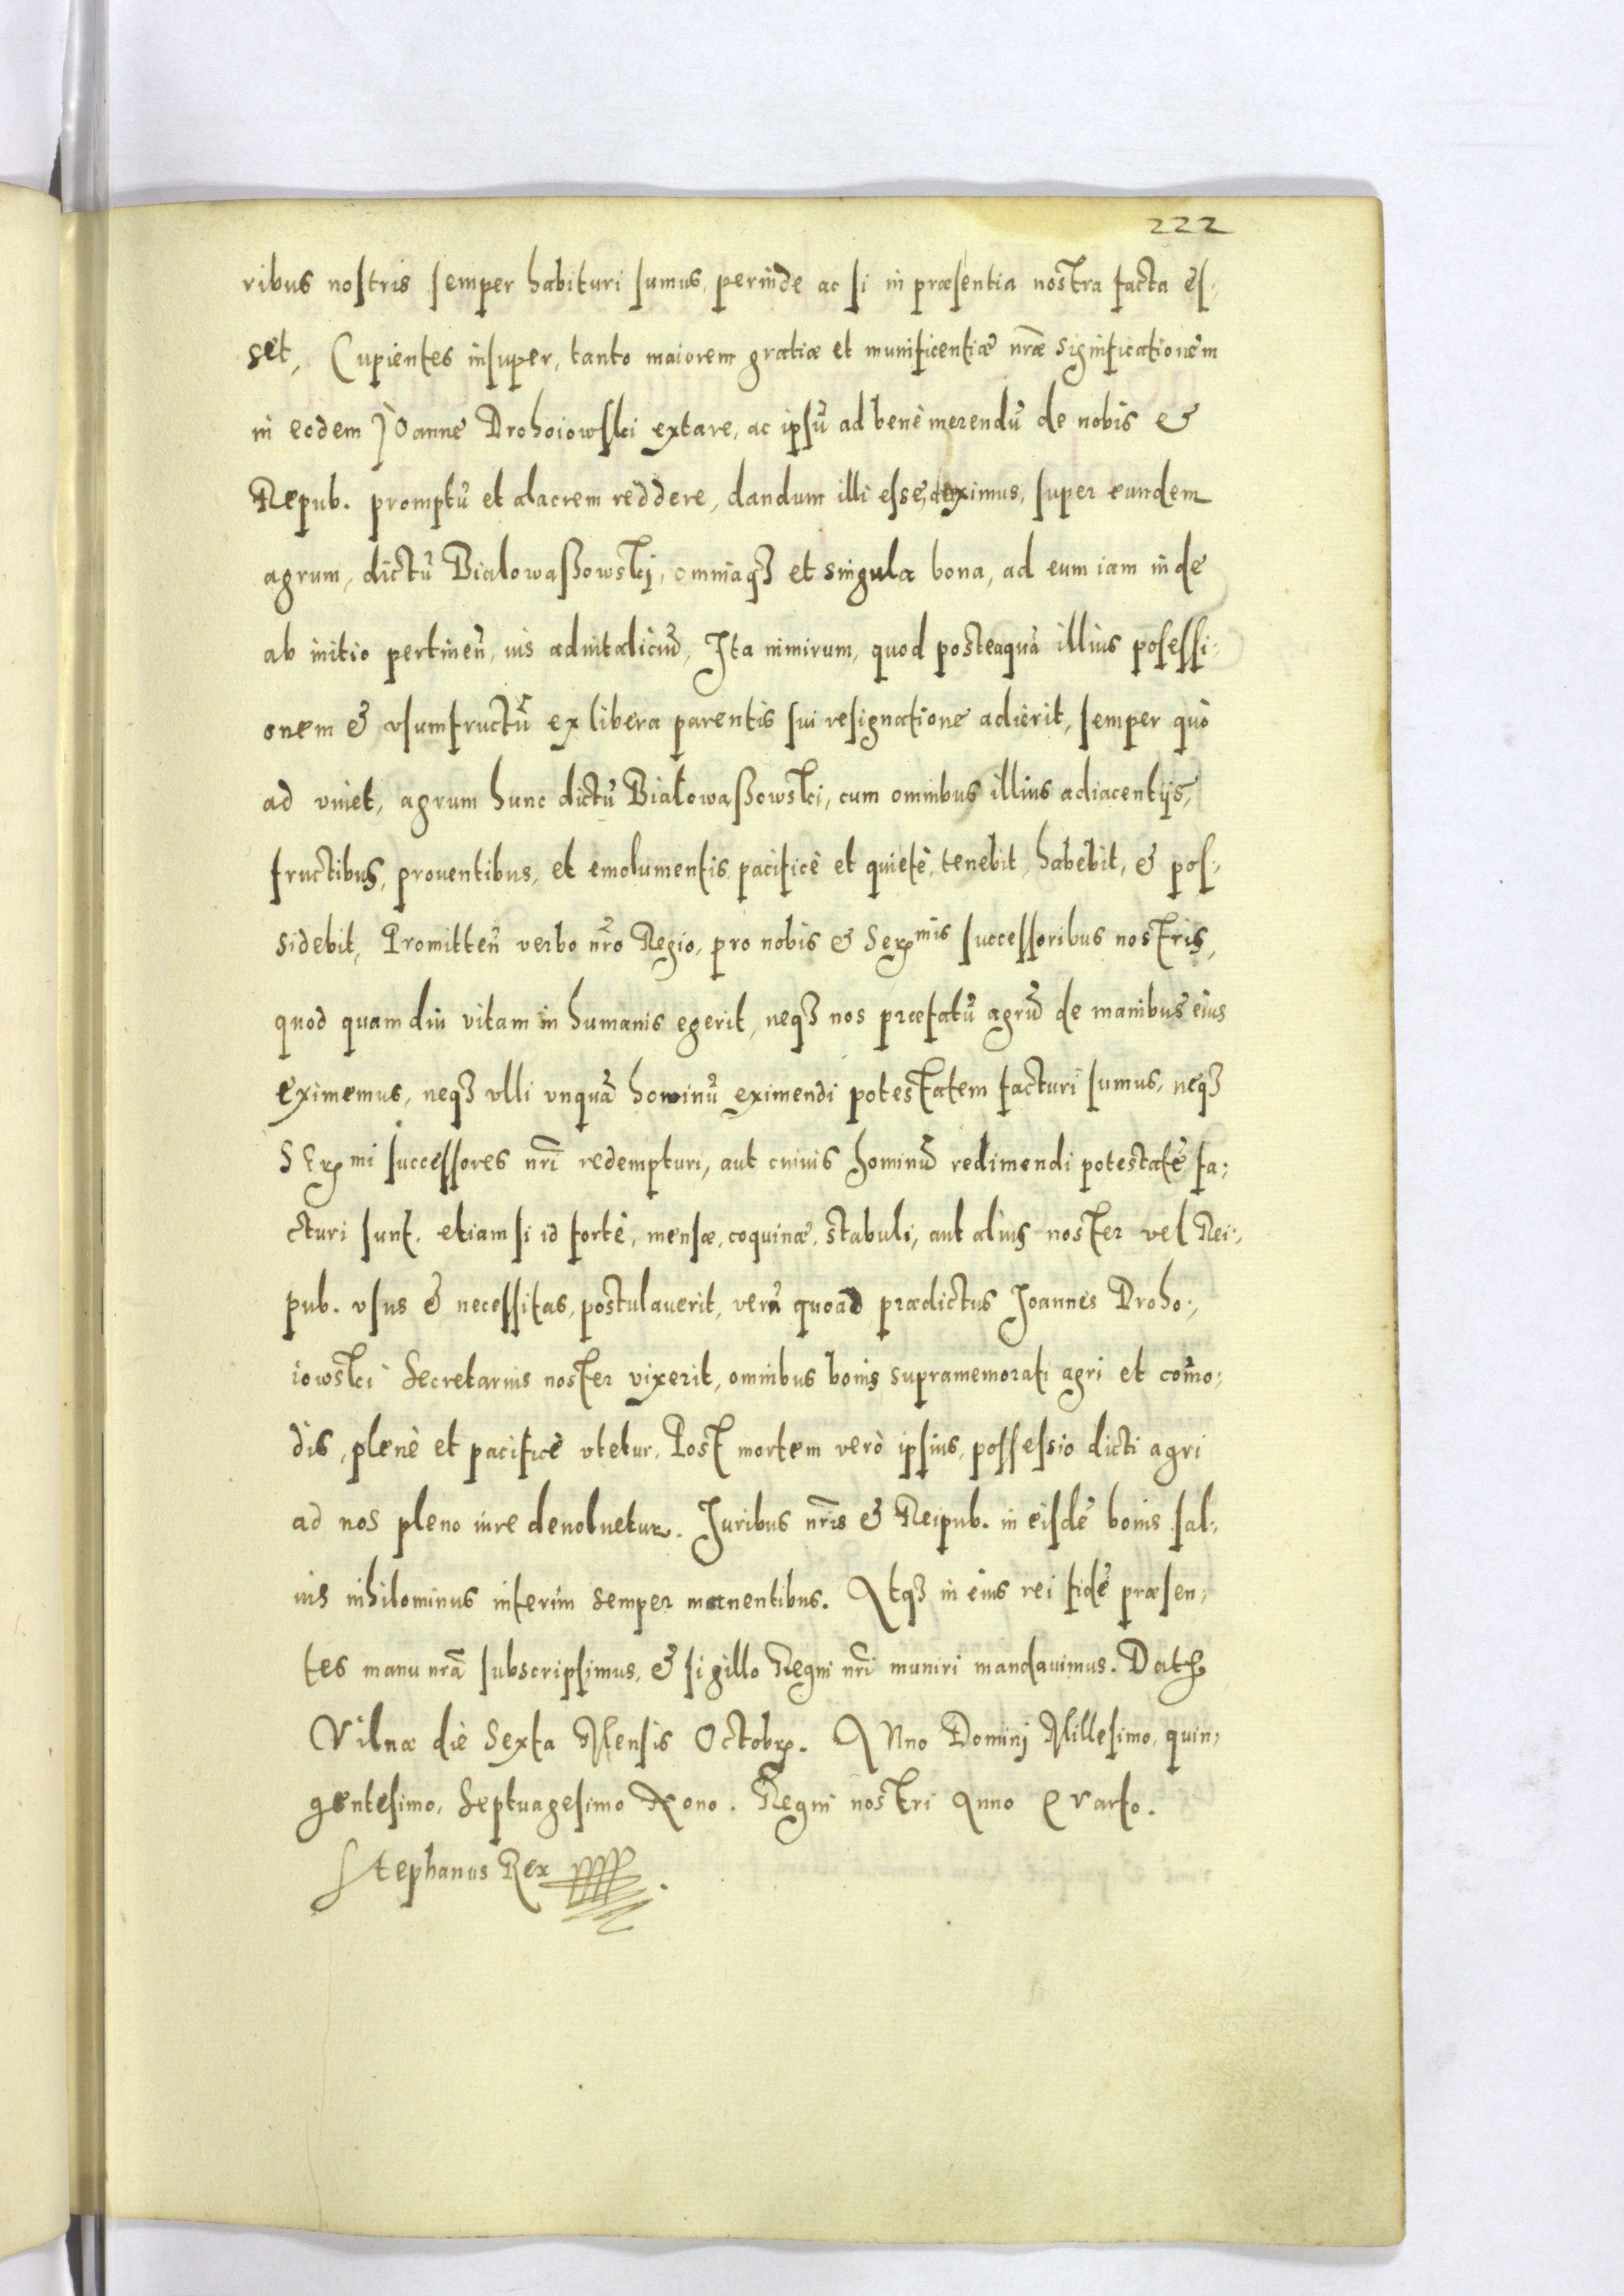 222
ribus nostris semper habituri sumus, perinde ac si in præsentia nostra facta es-
set, Cupientes insuper, tanto maiorem gratiæ et munificentiæ nr̃æ significationem
in eodem Joanne Drohoiowski extare, ac ipsũ ad benè merendũ de nobis &
Repub. promptũ et alacrem reddere, dandum illi esse duximus, super eundem
agrum, dictũ Bialowaßowskj, omniaqꝫ et singula bona, ad eum iam inde
ab initio pertineñ, ius aduitaliciũ, Ita nimirum, quod posteaquã illius posessi-
onem & vsumfructũ ex libera parentis sui resignatione adierit, semper quò
ad viuet, agrum hunc dictũ Białowaßowski, cum omnibus illius adiacentijs,
fructibus, prouentibus, et emolumentis pacificè et quietè, tenebit, habebit, & pos-
sidebit, Promitteñ verbo nr̃o Regio, pro nobis & Serꝫmis successoribus nostris,
quod quam diu vitam in humanis egerit, neqꝫ nos præfatũ agrũ de manibus eius
eximemus, neqꝫ vlli vnquã hominũ eximendi potestatem facturi sumus, neqꝫ
Serꝫmi successores nr̃i redempturi, aut cuiuis hominũ redimendi potestatẽ fa-
cturi sunt, etiam si id fortè, mensæ, coquinæ, stabuli, aut alius noster vel Rei-
pub. vsus & necessitas, postulauerit, verũ quoad prædictus Joannes Droho-
iowski Secretarius noster vixerit, omnibus bonis supramemorati agri et com̃o-
dis, plenè et pacificè vtetur, Post mortem verò ipsius, possessio dicti agri
ad nos pleno iure deuoluetur. Juribus nr̃is & Reipub. in eisdẽ bonis sal-
uis nihilominus interim semper manentibus. Atqꝫ in eius rei fidẽ præsen-
tes manu nr̃a subscripsimus, & sigillo Regni nr̃i muniri mandauimus. Datꝫ
Vilnæ die Sexta Mensis Octobrꝫ. ANno Dominj Millesimo, quin-
gentesimo, Septuagesimo Nono. Regni nostri Anno Quarto.
Stephanus Rex